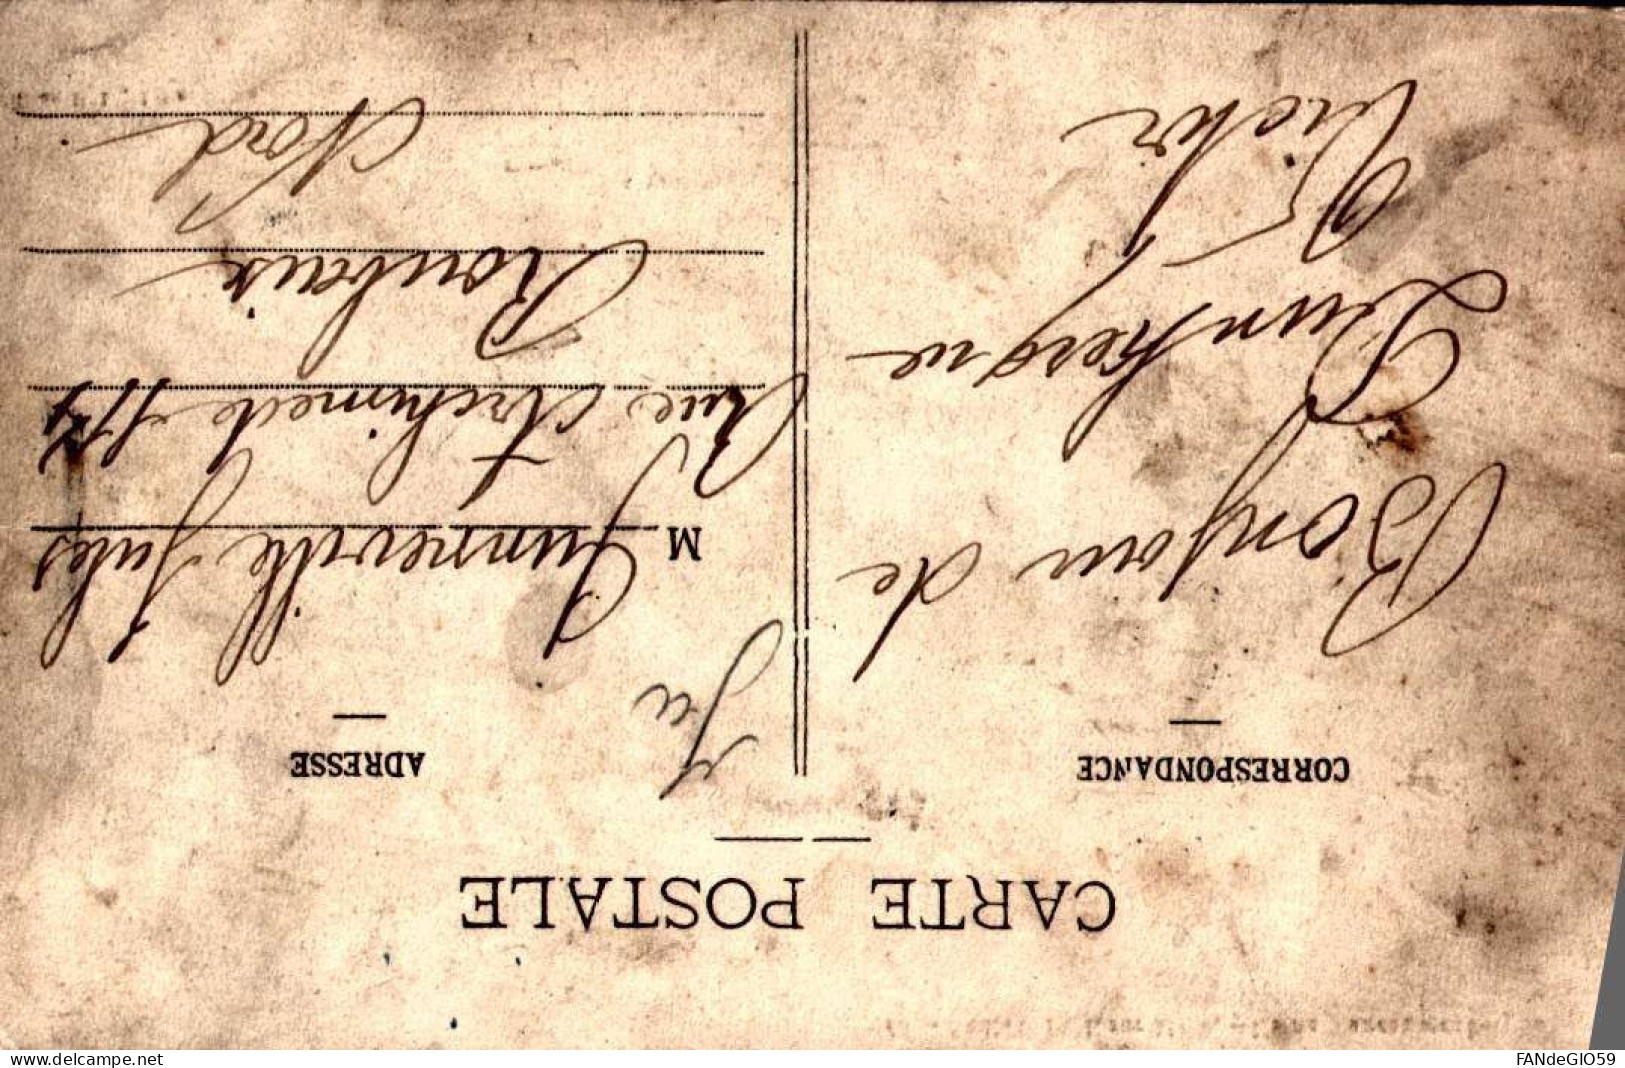 CARTE POSTALE
CORRESPONDANCE
Bonjour de
Dunkerque
Victor
ADRESSE
M Lunneville Jules
Rue Archimede
Roubaix
Nord
delcampe.net
FANdeGIO59